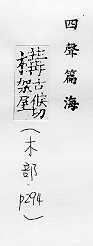 四聲篇海
古候切
架屋
(木部, p294)